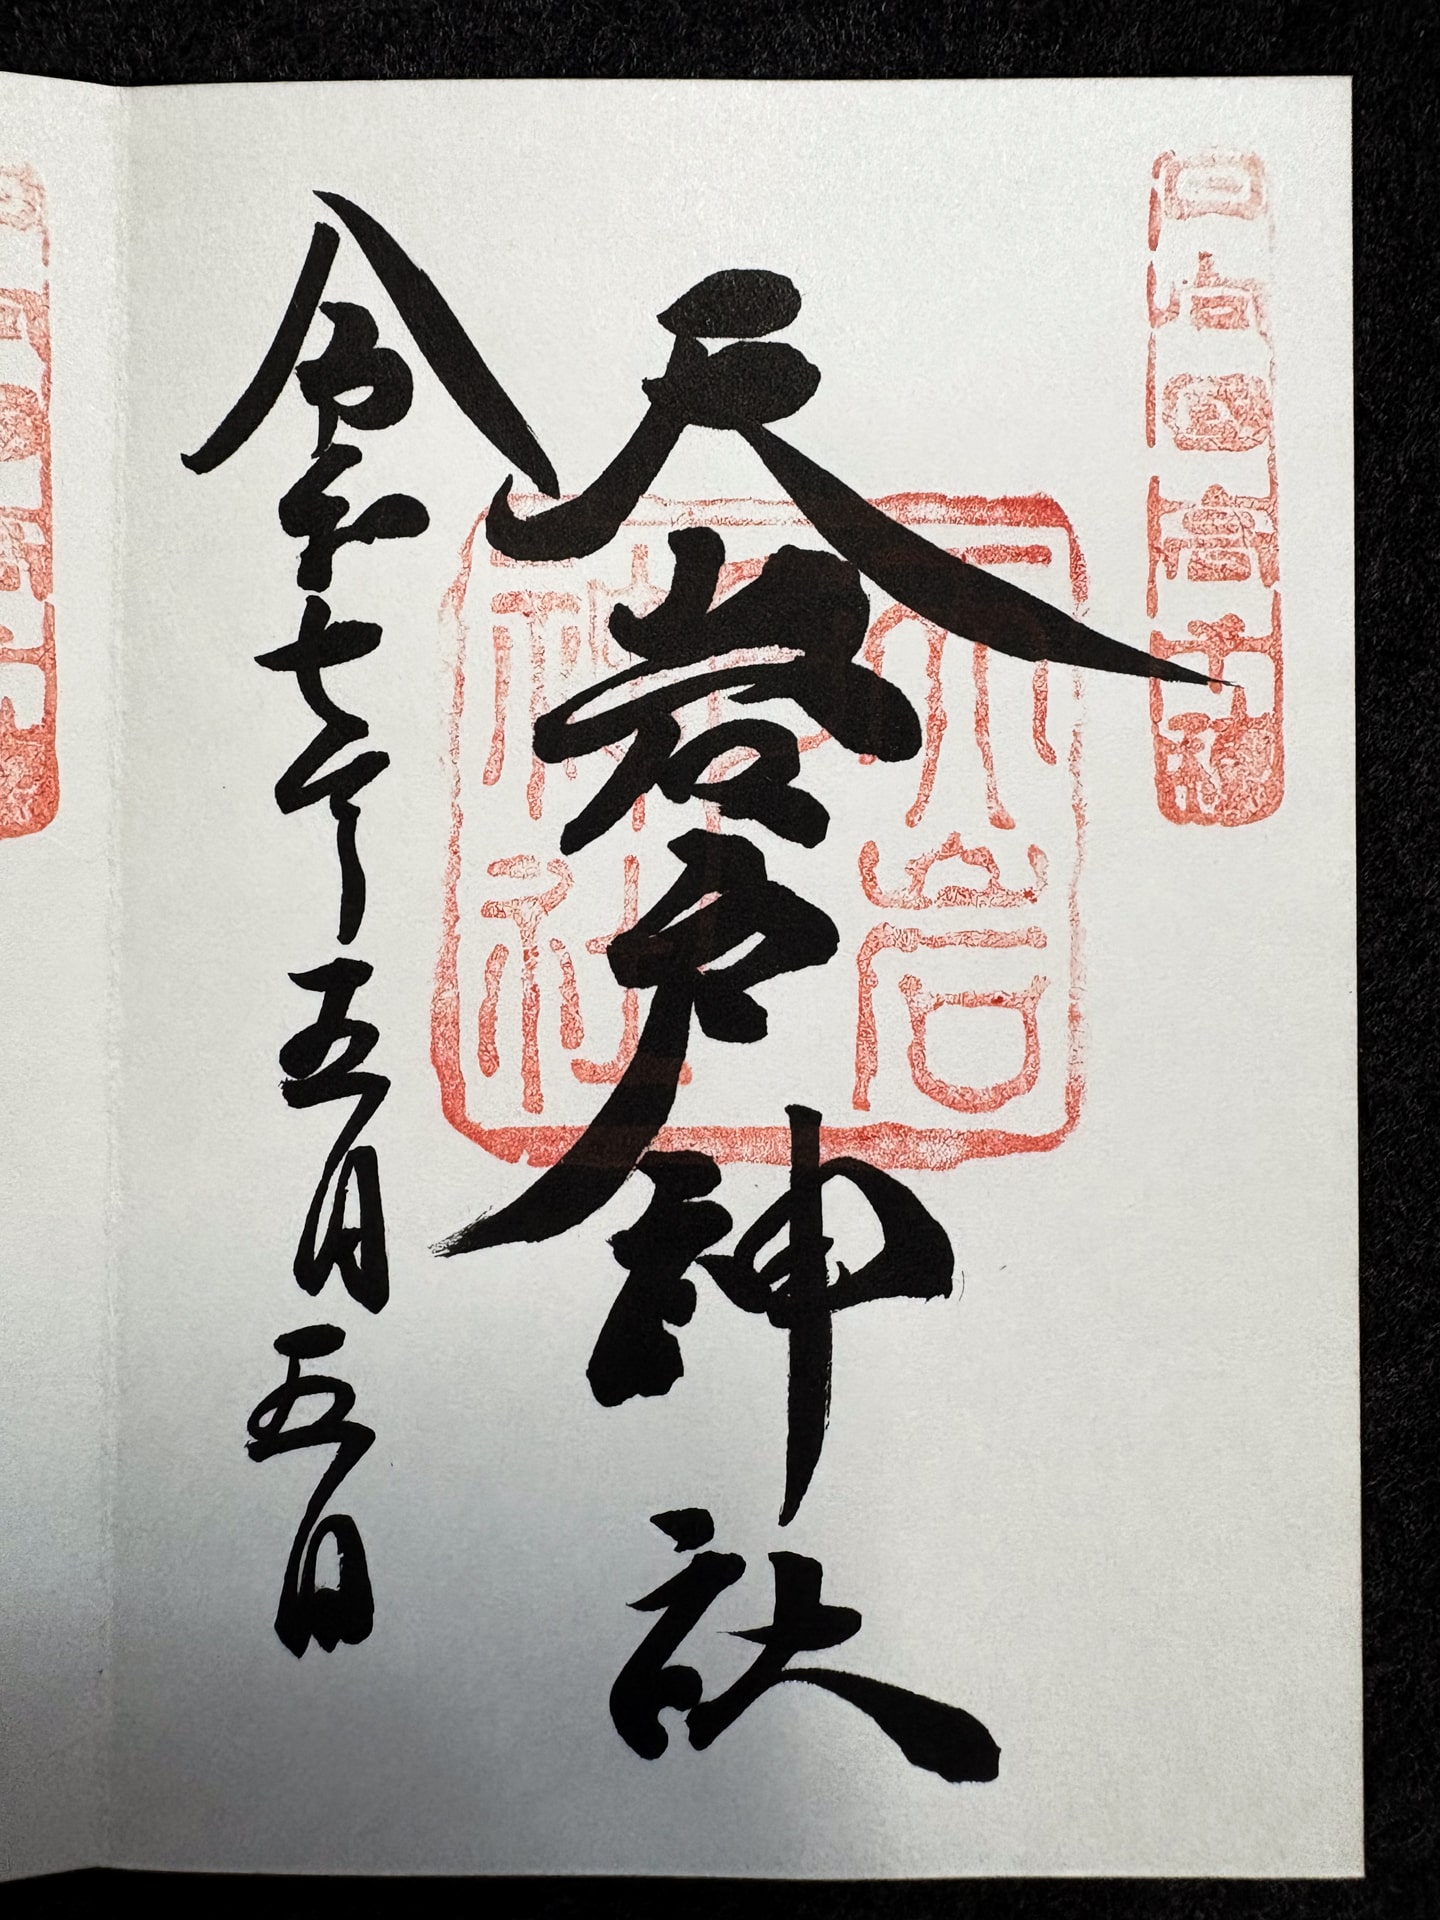 日向国高千穂
天岩戸神社
天岩戸神社
令和七年五月五日